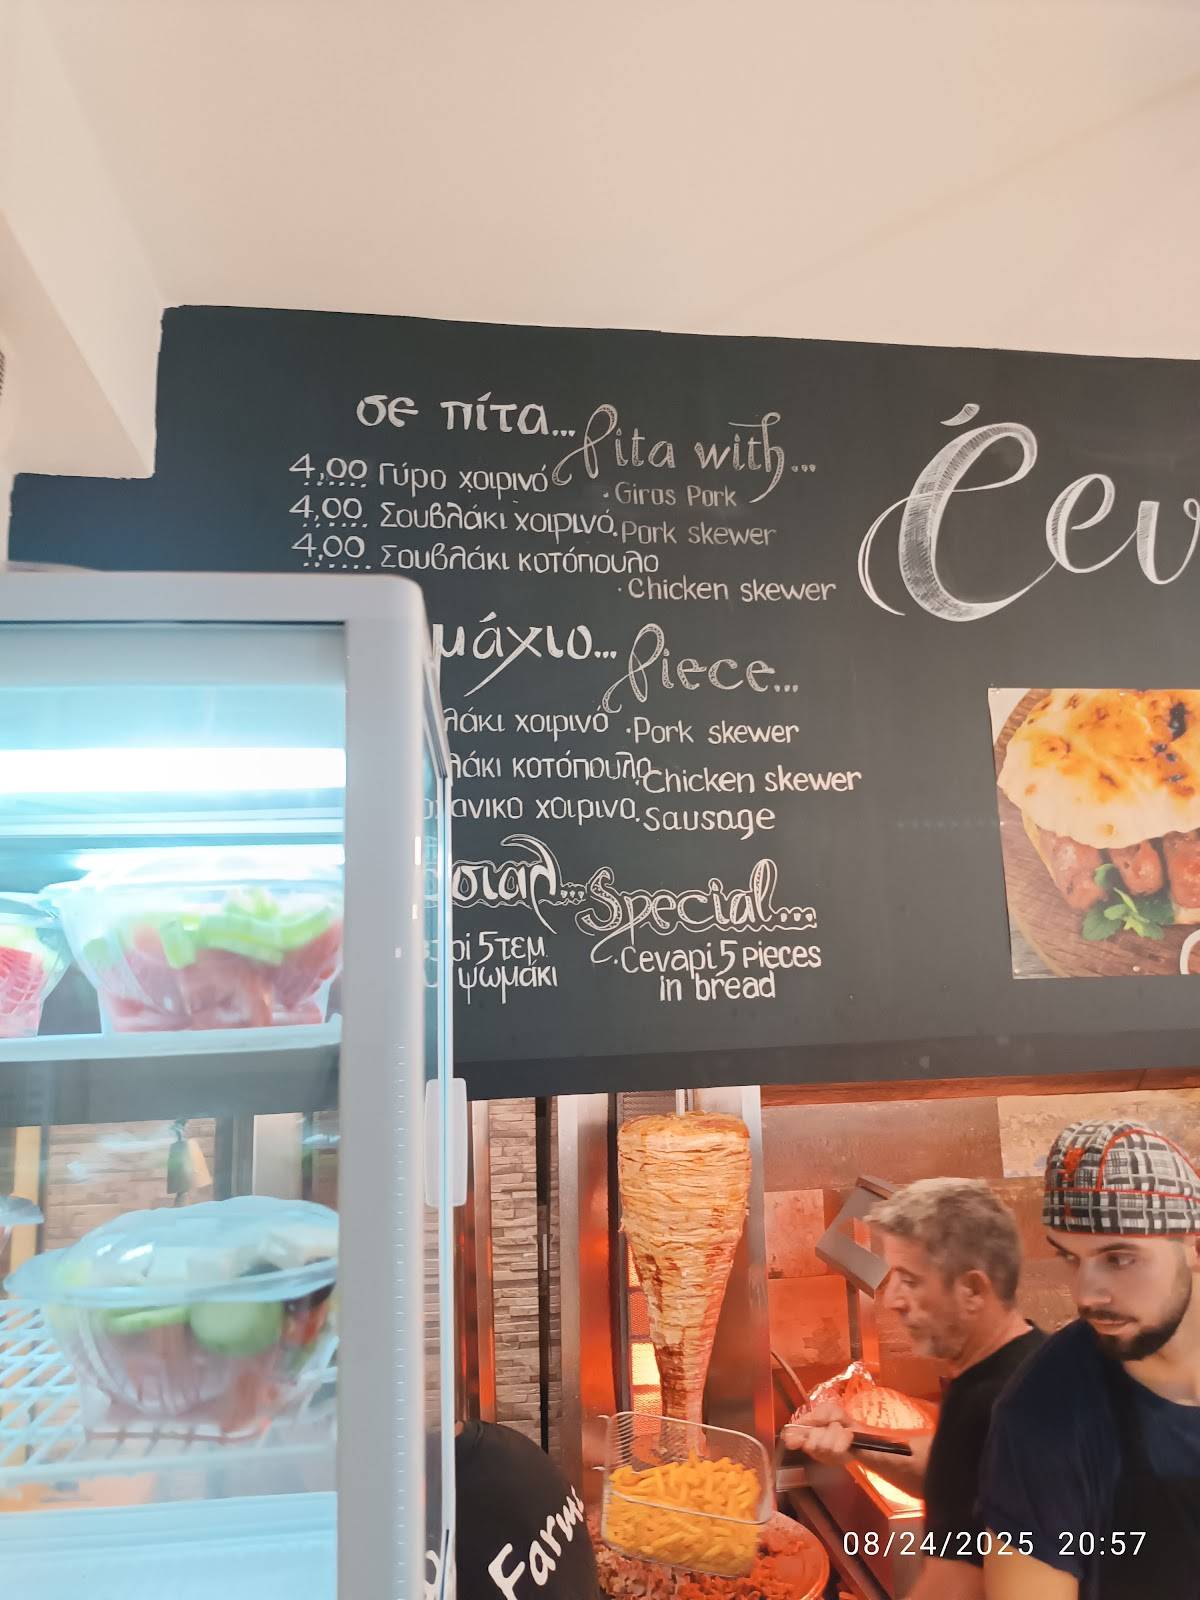 σε πίτα... Pita with...
4,00 Γύρο χοιρινό · Giros Pork
4,00 Σουβλάκι χοιρινό · Pork skewer
4,00 Σουβλάκι κοτόπουλο
· Chicken skewer
μάχιο... Piece...
λάκι χοιρινό · Pork skewer
λάκι κοτόπουλο · Chicken skewer
ανικο χοιρινο · Sausage
σιαλ... Special...
5τεμ · Cevapi 5 pieces
ψωμάκι in bread
Farm
08/24/2025 20:57